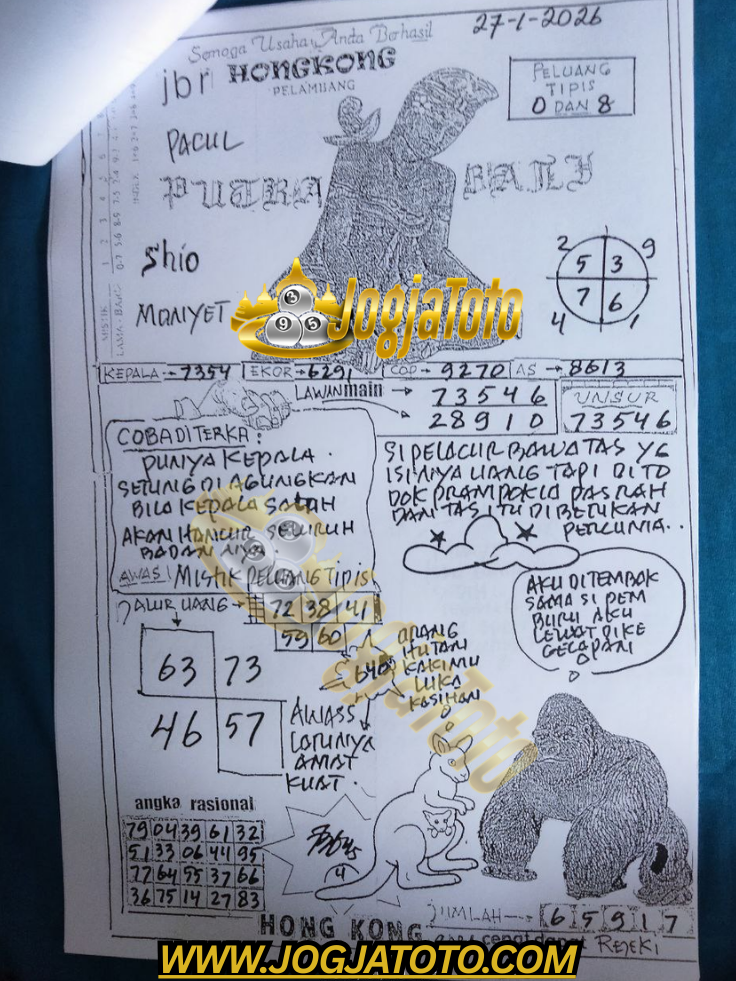 27-1-2026
Semoga Usaha Anda Berhasil
HONGKONG
PELAMBANG
PELUANG
TIPIS
0 DAN 8
PACUL
PUTRA BALI
Shio
MONYET
2 9
5 3
7 6
4 1
JogjaToto
9 5
KEPALA → 7354 EKOR → 6291 COP → 9270 AS → 8613
LAWAN main → 73546
28910
UNSUR
73546
COBA DITERKA :
PUNYA KEPALA .
SELING DI AGUNGKAN
BILA KEPALA SALAH
AKAN HANCUR SELURUH
BADAN NYA
AWAS! MISTIK PELUANG TIPIS
SI PELACUR BAWA TAS YG
ISINYA UANG TAPI DI TO
DOK PRAMPOK LA PASRAH
DAN TAS ITU DIBERIKAN
PERCUMA..
AKU DITEMBAK
SAMA SI PEM
BURU AKU
LEWAT DI KE
GELAPAN
JALUR UANG → 72 38 41
59 60
63 73
46 57
640
ORANG
HUTAN
KAKIMU
LUKA
KASIHAN
AWASS
AMAT
KUAT.
angka rasional
79 04 39 61 32
51 33 06 44 95
72 64 55 37 66
36 75 14 27 83
4
JUMLAH → 6 5 9 1 7
HONG KONG
cepat dapat REJEKI
WWW.JOGJATOTO.COM